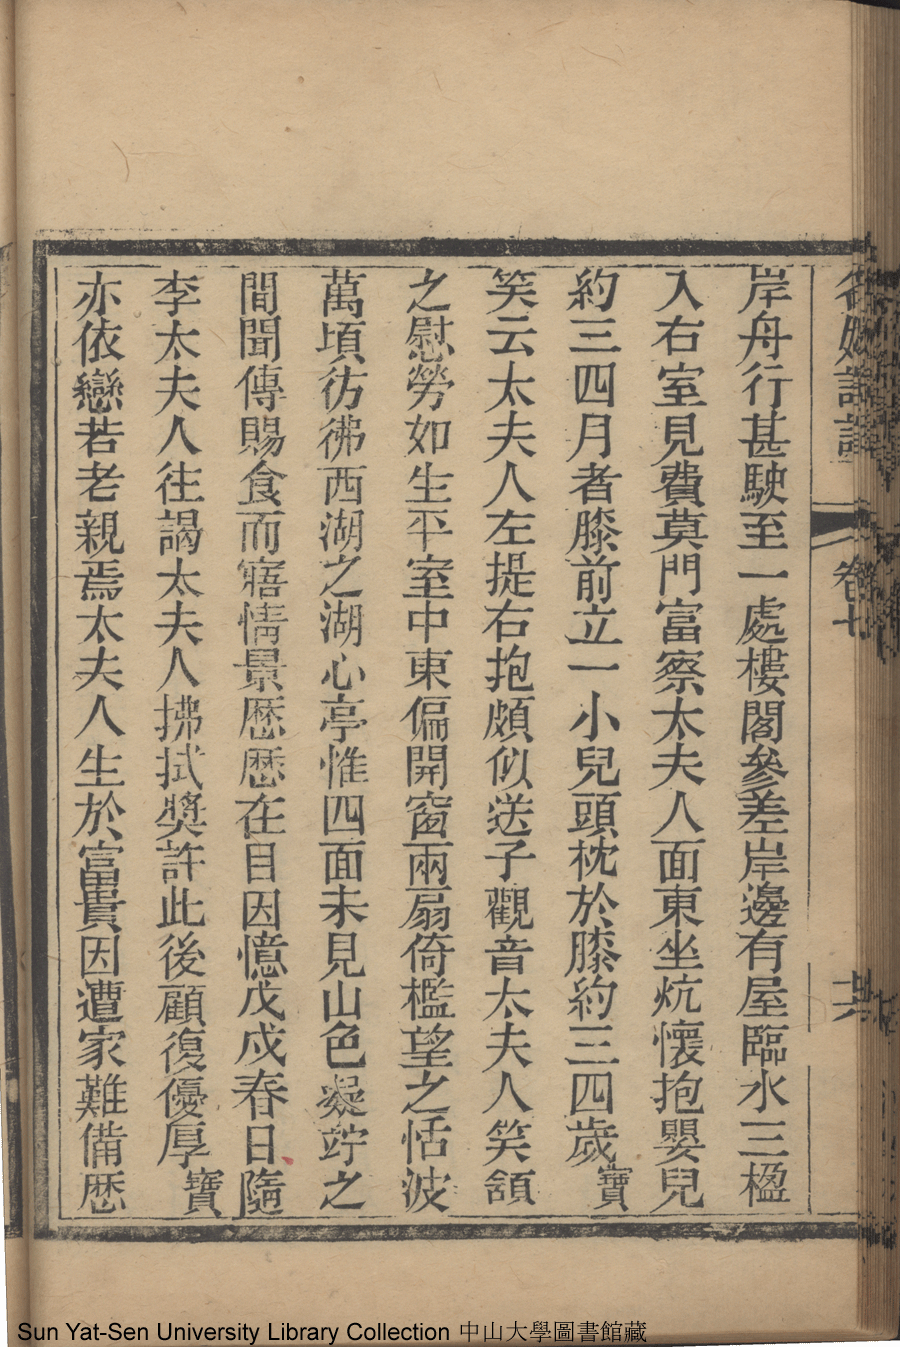 名媛詩話 卷七
岸舟行甚駛至一處樓閣參差岸邊有屋臨水三楹
入右室見費莫門富察太夫人面東坐炕懷抱嬰兒
約三四月者膝前立一小兒頭枕於膝約三四歲寶
笑云太夫人左提右抱頗似送子觀音太夫人笑頷
之慰勞如生平室中東偏開窗兩扇倚檻望之恬波
萬頃彷彿西湖之湖心亭惟四面未見山色凝竚之
間聞傳賜食而寤情景歷歷在目因憶戊戌春日隨
李太夫人往謁太夫人拂拭獎許此後顧復優厚寶
亦依戀若老親焉太夫人生於富貴因遭家難備歷
Sun Yat-Sen University Library Collection 中山大學圖書館藏